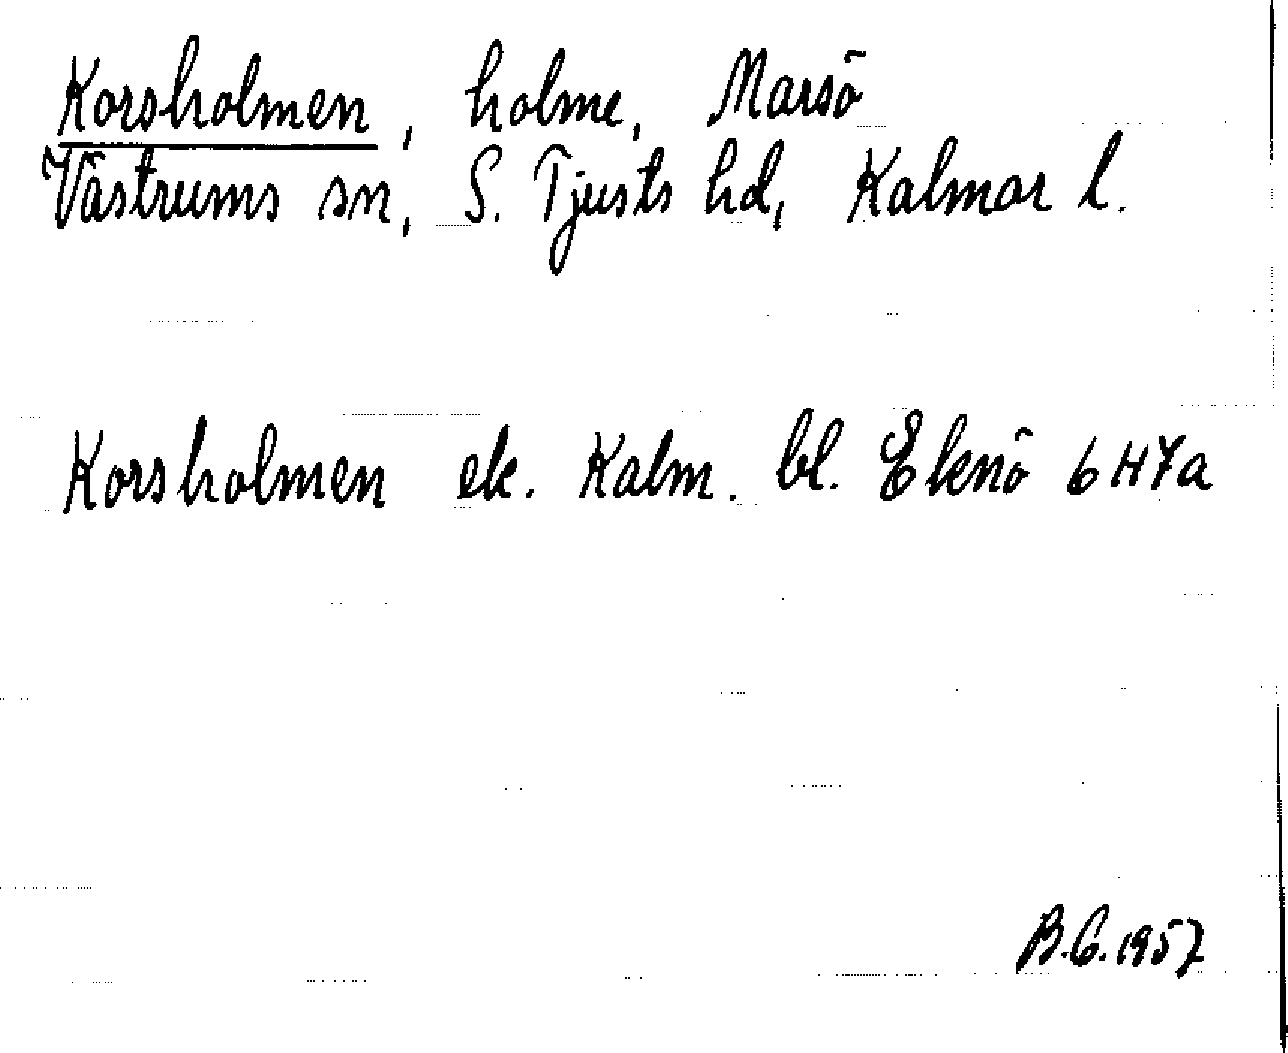 Korsholmen, holme, Marsö
Västrums sn, S. Tjusts hd, Kalmar l.
Korsholmen ek. Kalm. bl. Ekenö 6H7a
B.G. 1957